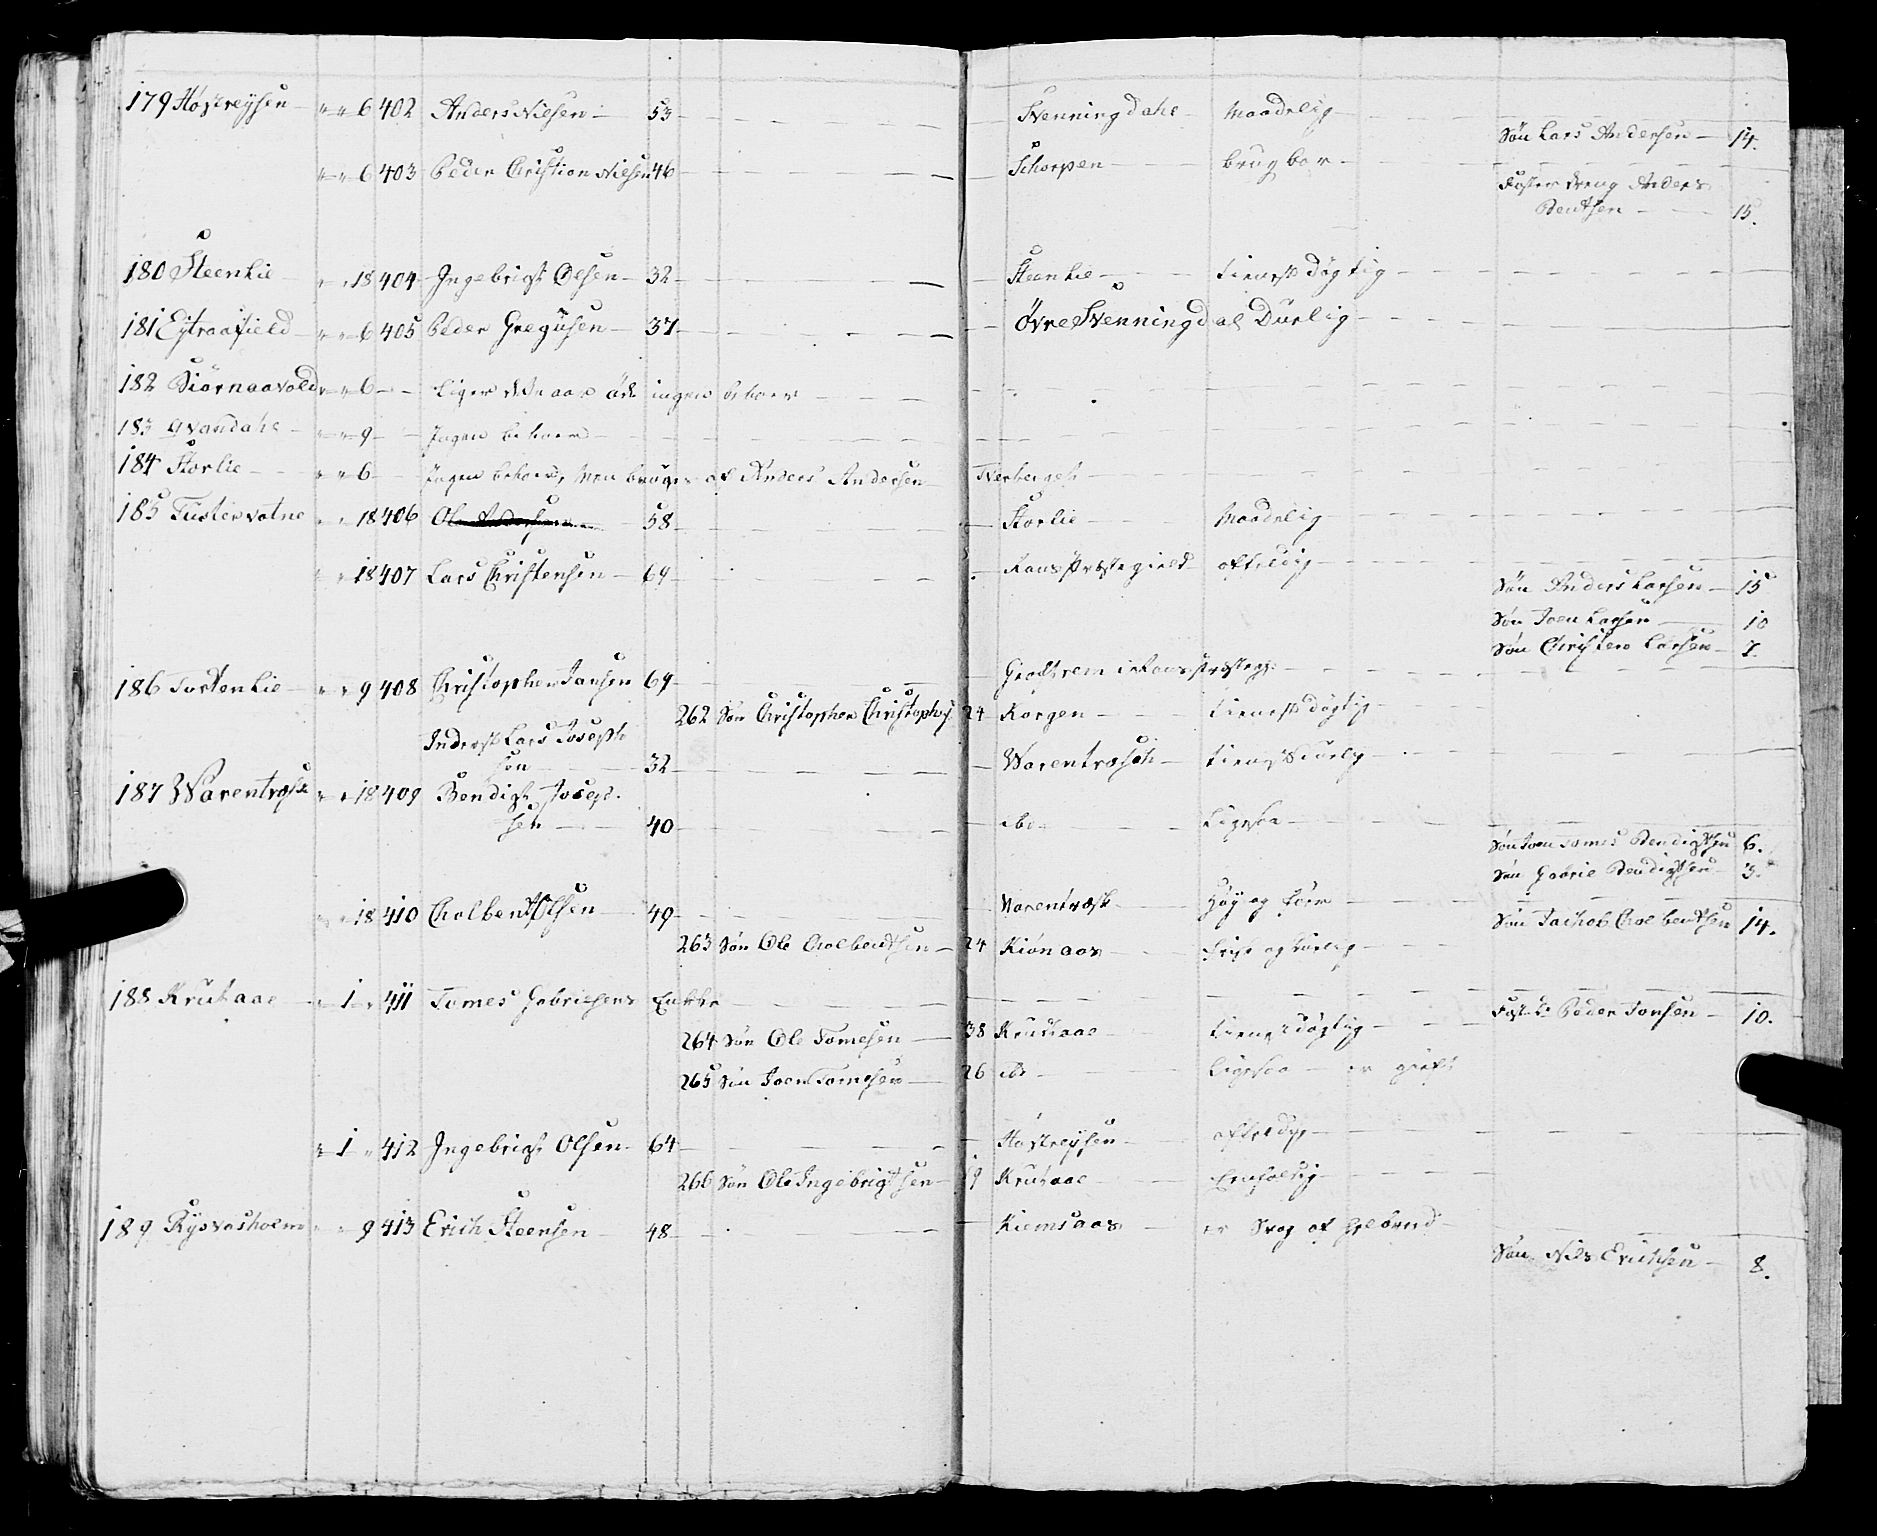 179 Høstreysen " " 6 402 Anders Nielsen 53 Svenningdahl Maadelig
Søn Lars Andersen 14.
" " 6 403 Peder Christian Nielsen 46 Schorpen brugbar
Foster dreng Anders
Bentsen 15.
180 Steenlie " " 18 404 Ingebrigt Olsen 32 Steenlie tienst dögtig
181 Eytraafield " " 6 405 Peder Gregusen 37 Övre Svenningdal Durlig
182 Biörnaavold " " 6 Liger dette aar öde ingen beboer
183 Qvandahl " " 9 Ingen beboer
184 Storlie " " 6 Ingen beboer, Men bruges af Anders Andersen Tverberget
185 Tustervatne " " 18 406 58 Storlie Maadelig
" " 18 407 Lars Christensen 64 Ranspræstegield afteldig
Søn Anders Larsen 15
Søn Joen Larsen 10
Søn Christen Larsen 7.
186 Tortenlie " " 9 408 Christopher Jansen 64 i Ranspræsteg:
262 Søn Christopher Christophs. 24 Korgen tienest dögtig
Inderst Lars Joseph
sen 32 Warentræsch
187 Warentræsk " " 18 409 Bendigt Joseph
sen 40 ibd Ligesaa
Søn Joen Tomes Bendigtsen 6.
Søn Gabriel Bendigtsen 3.
" " 18 410 Cholbent Olsen 49 Warentræsk Höy og
Søn Jachob Cholbentsen 14.
263 Søn Ole Cholbentsen 24 Kiönaas
188 Krutaae " 1 " 411 Tomes Gabrielsens Enkke
Fost. d. Peder Jonsen 10.
264 Søn Ole Tomesen 38 Krutaae tienest dögtig
265 Søn Joen Tomesen 26 ibd Ligesaa er gift
" 1 " 412 Ingebrigt Olsen 64 Høstreysen
266 Søn Ole Ingebrigtsen 19 Krutaae Enfoldig
189 Rysvasholm " " 9 413 Erich Steensen 48 Kiemsaas er Svag af
Søn Nils Erichsen 8.